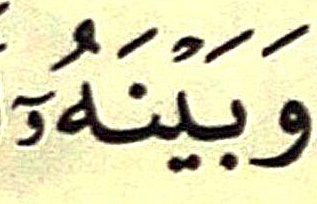 وَبَيْنَهُۥٓ